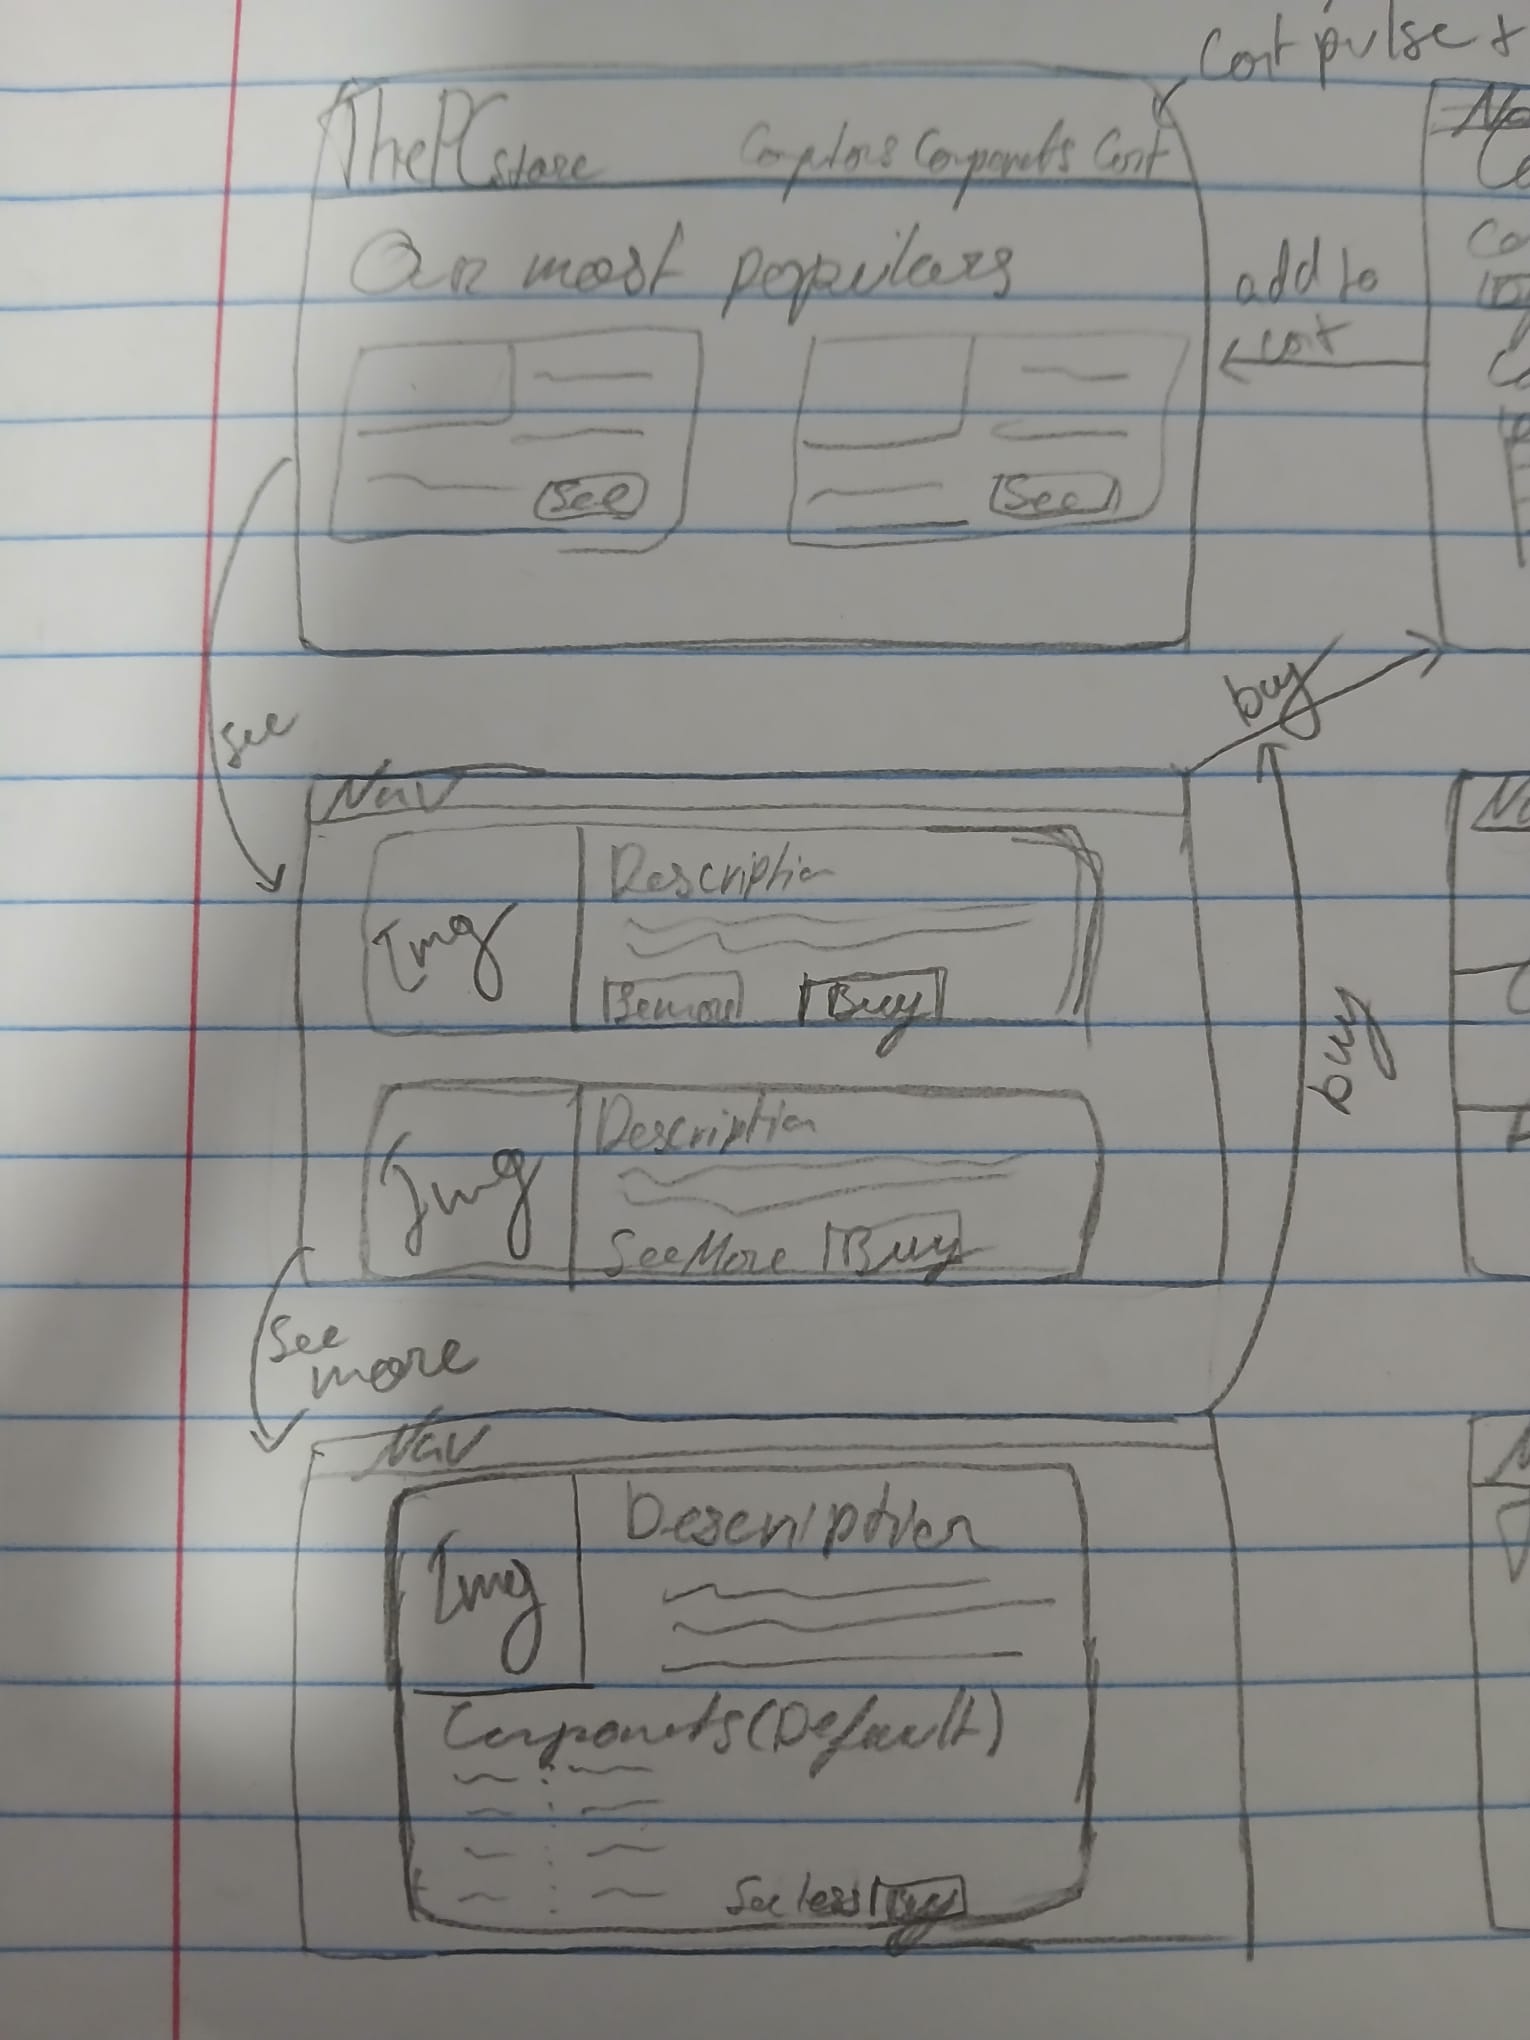 Cart pulse +
ThePCstore Computers Components Cart
Our most populars
add to
cart
See See
buy
see
Nav
Description
Img
Semore Buy
buy
Description
Img
See More Buy
See
more
Nav
Description
Img
Components (Default)
See less Buy